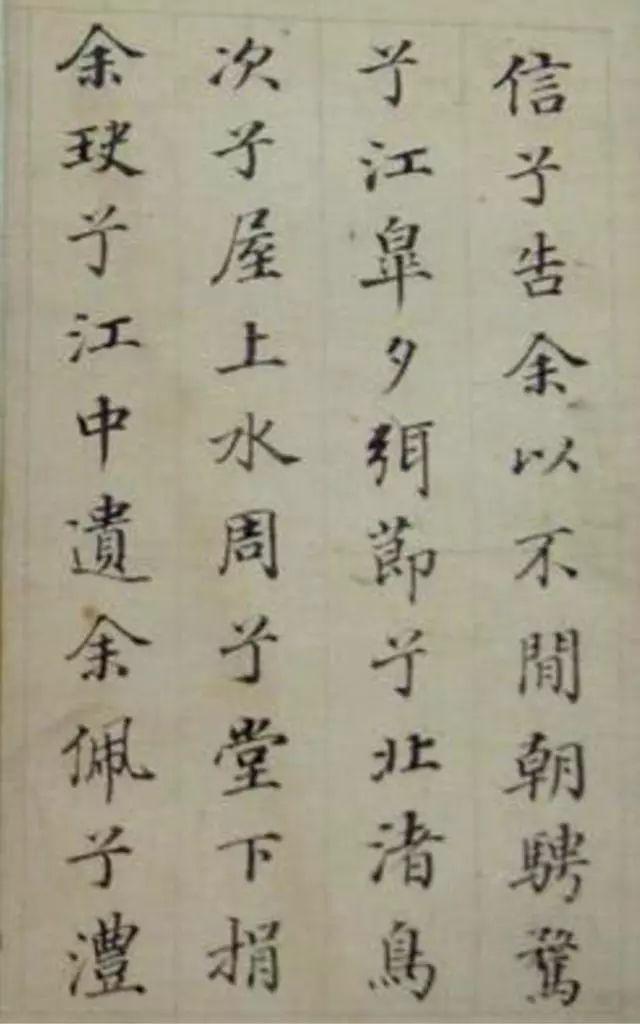 信兮告余以不閒朝騁騖
兮江臯夕弭節兮北渚鳥
次兮屋上水周兮堂下捐
余玦兮江中遺余佩兮澧